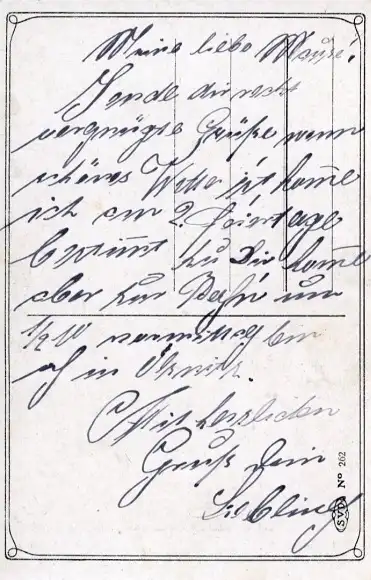 Meine liebe Mausi!
Sende dir recht
vergnügte Grüße wenn
schönes Wetter ist komme
ich am 2. Feiertage
bestimmt zu Dir komme
aber zur Bahn um
1/2 10 vormittag bin
ich in
Mit herzlichen
Gruß dein
Liebling
SVD No 262